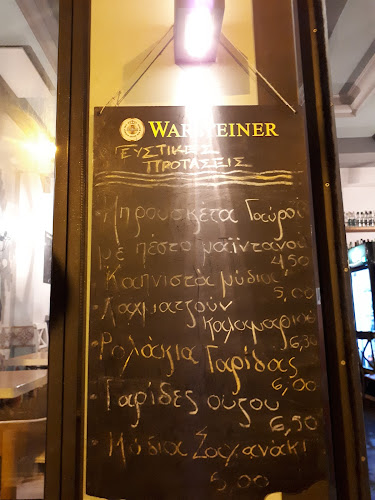 WARSTEINER
ΓΕΥΣΤΙΚΕΣ
ΠΡΟΤΑΣΕΙΣ
• Μπρουσκέτα Γαύρου
με πέστο μαϊντανού
4,50
• Καπνιστά μύδια
5,00
• Λαχματζούν
καλαμαριού
6,30
• Ρολάκια Γαρίδας
6,00
• Γαρίδες ούζου
6,50
• Μύδια Σαγανάκι
5,00